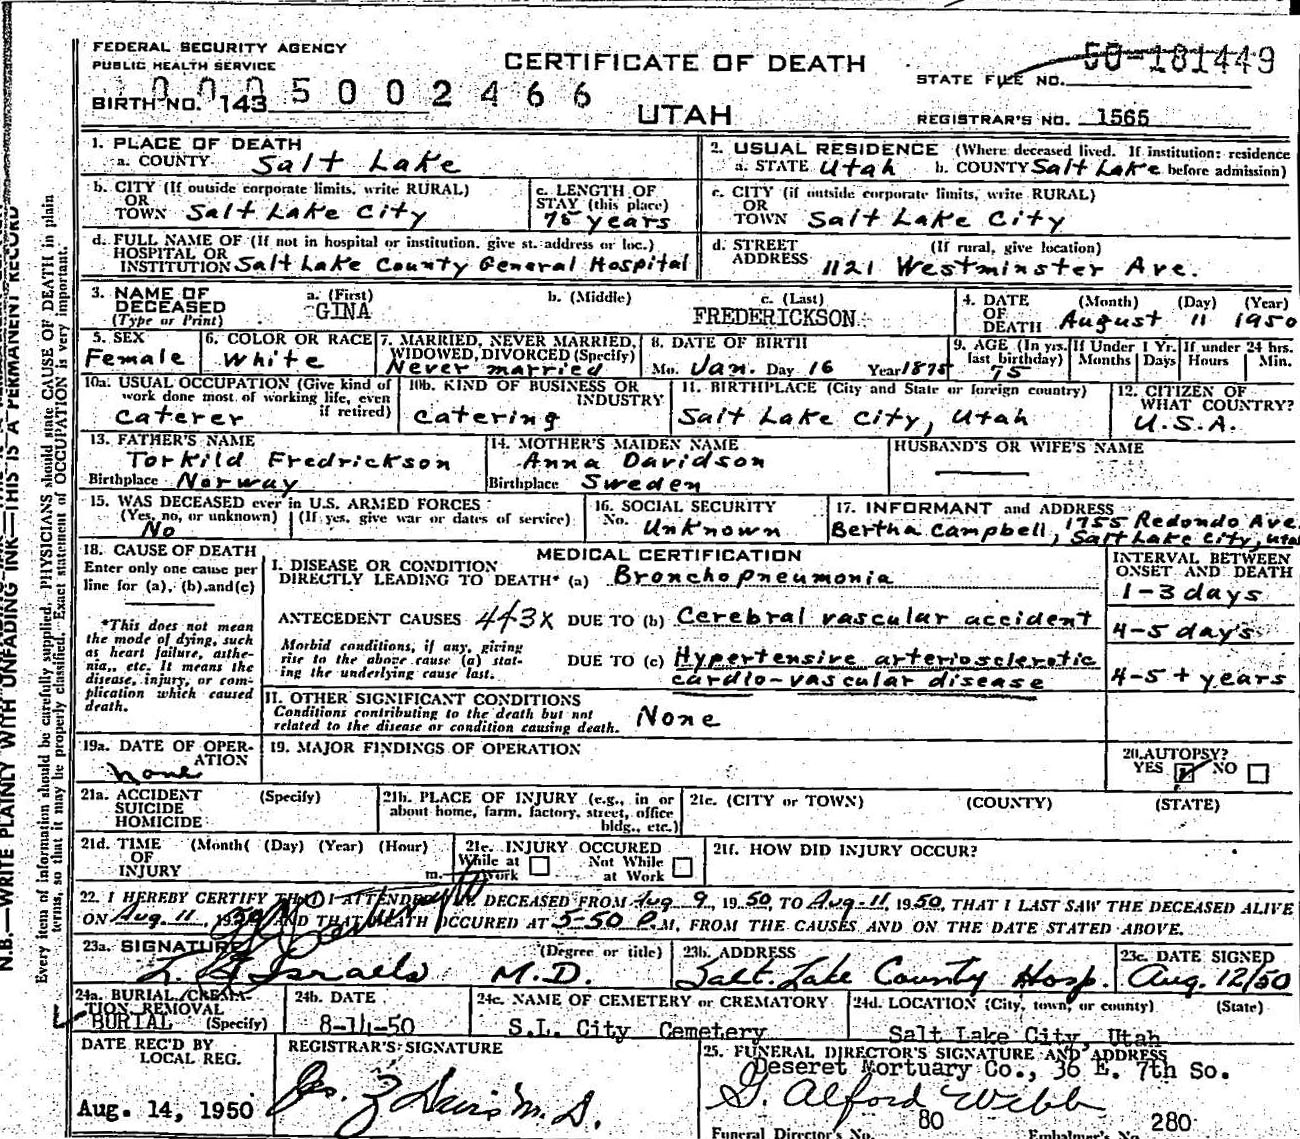 FEDERAL SECURITY AGENCY
PUBLIC HEALTH SERVICE
CERTIFICATE OF DEATH
STATE FILE NO. 50-181449
0005002466
BIRTH NO. 143
UTAH
REGISTRAR'S NO. 1565
1. PLACE OF DEATH
a. COUNTY Salt Lake
2. USUAL RESIDENCE (Where deceased lived. If institution: residence
a. STATE Utah b. COUNTY Salt Lake before admission)
b. CITY (If outside corporate limits, write RURAL)
OR
TOWN Salt Lake City
c. LENGTH OF
STAY (this place)
75 years
c. CITY (if outside corporate limits, write RURAL)
OR
TOWN Salt Lake City
d. FULL NAME OF (If not in hospital or institution, give st. address or loc.)
HOSPITAL OR
INSTITUTION Salt Lake County General Hospital
d. STREET (If rural, give location)
ADDRESS 1121 Westminster Ave.
3. NAME OF
DECEASED
(Type or Print)
a. (First)
GINA
b. (Middle)
c. (Last)
FREDERICKSON
4. DATE (Month) (Day) (Year)
OF
DEATH August 11 1950
5. SEX
Female
6. COLOR OR RACE
White
7. MARRIED, NEVER MARRIED,
WIDOWED, DIVORCED (Specify)
Never married
8. DATE OF BIRTH
Mo. Jan. Day 16 Year 1875
9. AGE (In yrs.
last birthday)
75
If Under 1 Yr.
Months Days
If under 24 hrs.
Hours Min.
10a. USUAL OCCUPATION (Give kind of
work done most of working life, even
if retired)
Caterer
10b. KIND OF BUSINESS OR
INDUSTRY
Catering
11. BIRTHPLACE (City and State or foreign country)
Salt Lake City, Utah
12. CITIZEN OF
WHAT COUNTRY?
U.S.A.
13. FATHER'S NAME
Torkild Fredrickson
Birthplace Norway
14. MOTHER'S MAIDEN NAME
Anna Davidson
Birthplace Sweden
HUSBAND'S OR WIFE'S NAME
15. WAS DECEASED ever in U.S. ARMED FORCES
(Yes, no, or unknown) (If yes, give war or dates of service)
No
16. SOCIAL SECURITY
No. Unknown
17. INFORMANT and ADDRESS
Bertha Campbell, 1755 Redondo Ave
Salt Lake City, Utah
18. CAUSE OF DEATH
Enter only one cause per
line for (a), (b), and (c)
*This does not mean
the mode of dying, such
as heart failure, asthe-
nia, etc. It means the
disease, injury, or com-
plication which caused
death.
MEDICAL CERTIFICATION
I. DISEASE OR CONDITION
DIRECTLY LEADING TO DEATH* (a) Bronchopneumonia
ANTECEDENT CAUSES 443X DUE TO (b) Cerebral vascular accident
Morbid conditions, if any, giving
rise to the above cause (a) stat-
ing the underlying cause last.
DUE TO (c) Hypertensive arteriosclerotic
cardio-vascular disease
II. OTHER SIGNIFICANT CONDITIONS
Conditions contributing to the death but not
related to the disease or condition causing death.
None
INTERVAL BETWEEN
ONSET AND DEATH
1-3 days
4-5 days
4-5 + years
19a. DATE OF OPER-
ATION
none
19. MAJOR FINDINGS OF OPERATION
20. AUTOPSY?
YES NO
21a. ACCIDENT (Specify)
SUICIDE
HOMICIDE
21b. PLACE OF INJURY (e.g., in or
about home, farm, factory, street, office
bldg., etc.)
21c. (CITY or TOWN) (COUNTY) (STATE)
21d. TIME (Month( (Day) (Year) (Hour)
OF
INJURY m.
21e. INJURY OCCURED
While at Work
Not While at Work
21f. HOW DID INJURY OCCUR?
22. I HEREBY CERTIFY THAT I ATTENDED DECEASED FROM Aug 9, 1950, TO Aug-11, 1950, THAT I LAST SAW THE DECEASED ALIVE
ON Aug. 11, 1950 AND THAT DEATH OCCURED AT 5-50 P.M, FROM THE CAUSES AND ON THE DATE STATED ABOVE.
23a. SIGNATURE (Degree or title)
Israels M.D.
23b. ADDRESS
Salt Lake County Hosp.
23c. DATE SIGNED
Aug. 12/50
24a. BURIAL, CREMA-
TION, REMOVAL
BURIAL (Specify)
24b. DATE
8-14-50
24c. NAME OF CEMETERY or CREMATORY
S.L. City Cemetery
24d. LOCATION (City, town, or county) (State)
Salt Lake City, Utah
DATE REC'D BY
LOCAL REG.
Aug. 14, 1950
REGISTRAR'S SIGNATURE
Davis M.D.
25. FUNERAL DIRECTOR'S SIGNATURE AND ADDRESS
Deseret Mortuary Co., 36 E. 7th So.
G. Alford Webb
80 280
Funeral Director's No. Embalmer's No.
N.B.—WRITE PLAINLY WITH UNFADING INK—THIS IS A PERMANENT RECORD
Every item of information should be carefully supplied. PHYSICIANS should state CAUSE OF DEATH in plain
terms, so that it may be properly classified. Exact statement of OCCUPATION is very important.